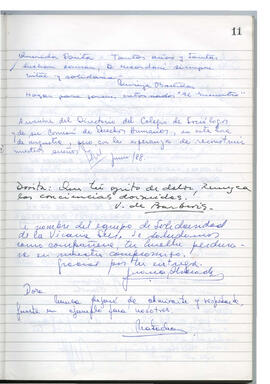 11
Querida Dorita: Tantos años y tantas
luchas la recordaré siempre
vital y solidaria
Hogar para jóvenes, "El Encuentro"
A nombre del Directorio del Colegio de Sociólogos
y de su Comisión de Derechos Humanos, en esta hora
de angustia, pero con la esperanza de reconstruir
nuestros sueños.
Junio/88.
Dorita: Que tu grito de dolor, remezca
las conciencias dormidas!
V. de Barberis
A nombre del equipo de Solidaridad
de la Vicaría Oeste, te saludamos
como compañera, tu huella perdura-
rá en nuestro compromiso.
Gracias por tu entrega.
Dora
Nunca dejaré de admirarte y respetarte,
fuiste un ejemplo para nosotros.